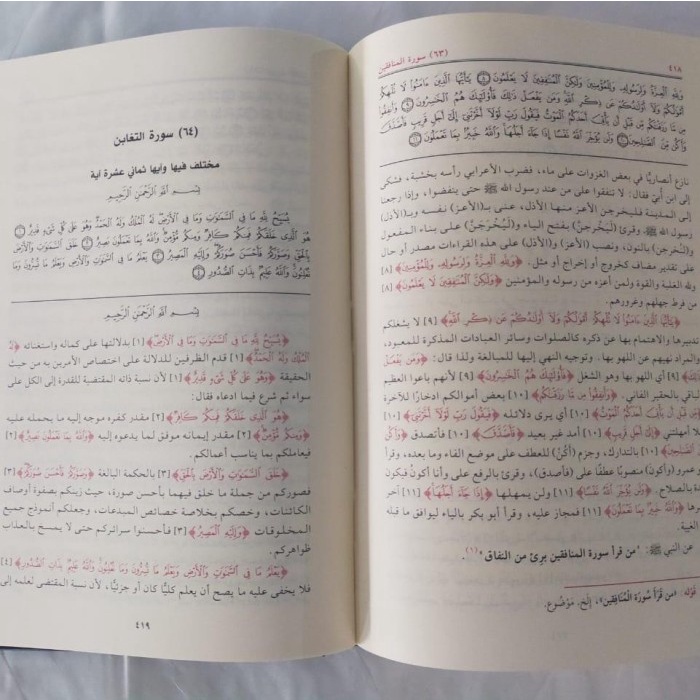 ٤١٨
(٦٣) سورة المنافقين
وَلِلَّهِ الْعِزَّةُ وَلِرَسُولِهِ وَلِلْمُؤْمِنِينَ وَلَٰكِنَّ الْمُنَافِقِينَ لَا يَعْلَمُونَ ﴿٨﴾ يَا أَيُّهَا الَّذِينَ آمَنُوا لَا تُلْهِكُمْ
أَمْوَالُكُمْ وَلَا أَوْلَادُكُمْ عَن ذِكْرِ اللَّهِ وَمَن يَفْعَلْ ذَٰلِكَ فَأُولَٰئِكَ هُمُ الْخَاسِرُونَ ﴿٩﴾ وَأَنفِقُوا
مِن مَّا رَزَقْنَاكُم مِّن قَبْلِ أَن يَأْتِيَ أَحَدَكُمُ الْمَوْتُ فَيَقُولَ رَبِّ لَوْلَا أَخَّرْتَنِي إِلَىٰ أَجَلٍ قَرِيبٍ فَأَصَّدَّقَ
وَأَكُن مِّنَ الصَّالِحِينَ ﴿١٠﴾ وَلَن يُؤَخِّرَ اللَّهُ نَفْسًا إِذَا جَاءَ أَجَلُهَا وَاللَّهُ خَبِيرٌ بِمَا تَعْمَلُونَ ﴿١١﴾
نازع أنصاريًّا في بعض الغزوات على ماء، فضرب الأعرابي رأسه بخشبة، فشكى
إلى ابن أُبيّ فقال: لا تنفقوا على من عند رسول الله ﷺ حتى ينفضوا، وإذا رجعنا
إلى المدينة فليخرجن الأعز منها الأذل، عنى بـ(الأعز) نفسه وبـ(الأذل)
رسول الله ﷺ، وقرئ (لَيَخْرُجَنَّ) بفتح الياء و(لَيُخْرَجَنَّ) على بناء المفعول
و(لنُخرجنّ) بالنون، ونصب (الأعز) و(الأذل) على هذه القراءات مصدر أو حال
على تقدير مضاف كخروج أو إخراج أو مثل. ﴿وَلِلَّهِ الْعِزَّةُ وَلِرَسُولِهِ وَلِلْمُؤْمِنِينَ﴾ [٨]
ولله الغلبة والقوة ولمن أعزه من رسوله والمؤمنين ﴿وَلَٰكِنَّ الْمُنَافِقِينَ لَا يَعْلَمُونَ﴾ [٨]
من فرط جهلهم وغرورهم.
﴿يَا أَيُّهَا الَّذِينَ آمَنُوا لَا تُلْهِكُمْ أَمْوَالُكُمْ وَلَا أَوْلَادُكُمْ عَن ذِكْرِ اللَّهِ﴾ [٩] لا يشغلكم
تدبيرها والاهتمام بها عن ذكره كالصلوات وسائر العبادات المذكرة للمعبود،
والمراد نهيهم عن اللهو بها. وتوجيه النهي إليها للمبالغة ولذا قال: ﴿وَمَن يَفْعَلْ
ذَٰلِكَ﴾ [٩] أي اللهو بها وهو الشغل ﴿فَأُولَٰئِكَ هُمُ الْخَاسِرُونَ﴾ [٩] لأنهم باعوا العظيم
الباقي بالحقير الفاني. ﴿وَأَنفِقُوا مِن مَّا رَزَقْنَاكُم﴾ [١٠] بعض أموالكم ادخارًا للآخرة
﴿مِّن قَبْلِ أَن يَأْتِيَ أَحَدَكُمُ الْمَوْتُ﴾ [١٠] أي يرى دلائله ﴿فَيَقُولَ رَبِّ لَوْلَا أَخَّرْتَنِي﴾ [١٠]
هلا أمهلتني ﴿إِلَىٰ أَجَلٍ قَرِيبٍ﴾ [١٠] أمد غير بعيد ﴿فَأَصَّدَّقَ﴾ [١٠] فأتصدق ﴿وَأَكُن
مِّنَ الصَّالِحِينَ﴾ [١٠] بالتدارك، وجزم (أكُنْ) للعطف على موضع الفاء وما بعده، وقرأ
عمرو (وأكون) منصوبًا عطفًا على (فأصدق)، وقرئ بالرفع على وأنا أكونُ فيكون
عدة بالصلاح. ﴿وَلَن يُؤَخِّرَ اللَّهُ نَفْسًا﴾ [١١] ولن يمهلها ﴿إِذَا جَاءَ أَجَلُهَا﴾ [١١] آخر
عمرها ﴿وَاللَّهُ خَبِيرٌ بِمَا تَعْمَلُونَ﴾ [١١] فمجاز عليه، وقرأ أبو بكر بالياء ليوافق ما قبله
الغيبة
عن النبي ﷺ: "من قرأ سورة المنافقين برئ من النفاق"(١).
قَوْله: «مَن قَرَأَ سُورَةَ الْمُنَافِقِين»، إلخ، مَوْضُوع.
(٦٤) سورة التغابن
مختلف فيها وآيها ثماني عشرة آية
بِسْمِ اللَّهِ الرَّحْمَٰنِ الرَّحِيمِ
يُسَبِّحُ لِلَّهِ مَا فِي السَّمَاوَاتِ وَمَا فِي الْأَرْضِ لَهُ الْمُلْكُ وَلَهُ الْحَمْدُ وَهُوَ عَلَىٰ كُلِّ شَيْءٍ قَدِيرٌ ﴿١﴾
هُوَ الَّذِي خَلَقَكُمْ فَمِنكُمْ كَافِرٌ وَمِنكُم مُّؤْمِنٌ وَاللَّهُ بِمَا تَعْمَلُونَ بَصِيرٌ ﴿٢﴾ خَلَقَ السَّمَاوَاتِ وَالْأَرْضَ
بِالْحَقِّ وَصَوَّرَكُمْ فَأَحْسَنَ صُوَرَكُمْ وَإِلَيْهِ الْمَصِيرُ ﴿٣﴾ يَعْلَمُ مَا فِي السَّمَاوَاتِ وَالْأَرْضِ وَيَعْلَمُ مَا تُسِرُّونَ وَمَا
تُعْلِنُونَ وَاللَّهُ عَلِيمٌ بِذَاتِ الصُّدُورِ ﴿٤﴾
بِسْمِ اللَّهِ الرَّحْمَٰنِ الرَّحِيمِ
﴿يُسَبِّحُ لِلَّهِ مَا فِي السَّمَاوَاتِ وَمَا فِي الْأَرْضِ﴾ [١] بدلالتها على كماله واستغنائه ﴿لَهُ
الْمُلْكُ وَلَهُ الْحَمْدُ﴾ [١] قدم الظرفين للدلالة على اختصاص الأمرين به من حيث
الحقيقة ﴿وَهُوَ عَلَىٰ كُلِّ شَيْءٍ قَدِيرٌ﴾ [١] لأن نسبة ذاته المقتضية للقدرة إلى الكل على
سواء ثم شرع فيما ادعاه فقال:
﴿هُوَ الَّذِي خَلَقَكُمْ فَمِنكُمْ كَافِرٌ﴾ [٢] مقدر كفره موجه إليه ما يحمله عليه
﴿وَمِنكُم مُّؤْمِنٌ﴾ [٢] مقدر إيمانه موفق لما يدعوه إليه ﴿وَاللَّهُ بِمَا تَعْمَلُونَ بَصِيرٌ﴾ [٢]
فيعاملكم بما يناسب أعمالكم.
﴿خَلَقَ السَّمَاوَاتِ وَالْأَرْضَ بِالْحَقِّ﴾ [٣] بالحكمة البالغة ﴿وَصَوَّرَكُمْ فَأَحْسَنَ صُوَرَكُمْ﴾ [٣]
فصوركم من جملة ما خلق فيهما بأحسن صورة، حيث زينكم بصفوة أوصاف
الكائنات، وخصكم بخلاصة خصائص المبدعات، وجعلكم أنموذج جميع
المخلوقات ﴿وَإِلَيْهِ الْمَصِيرُ﴾ [٣] فأحسنوا سرائركم حتى لا يمسخ بالعذاب
ظواهركم.
﴿يَعْلَمُ مَا فِي السَّمَاوَاتِ وَالْأَرْضِ وَيَعْلَمُ مَا تُسِرُّونَ وَمَا تُعْلِنُونَ وَاللَّهُ عَلِيمٌ بِذَاتِ الصُّدُورِ﴾ [٤]
فلا يخفى عليه ما يصح أن يعلم كليًّا كان أو جزئيًّا، لأن نسبة المقتضى لعلمه إلى
٤١٩